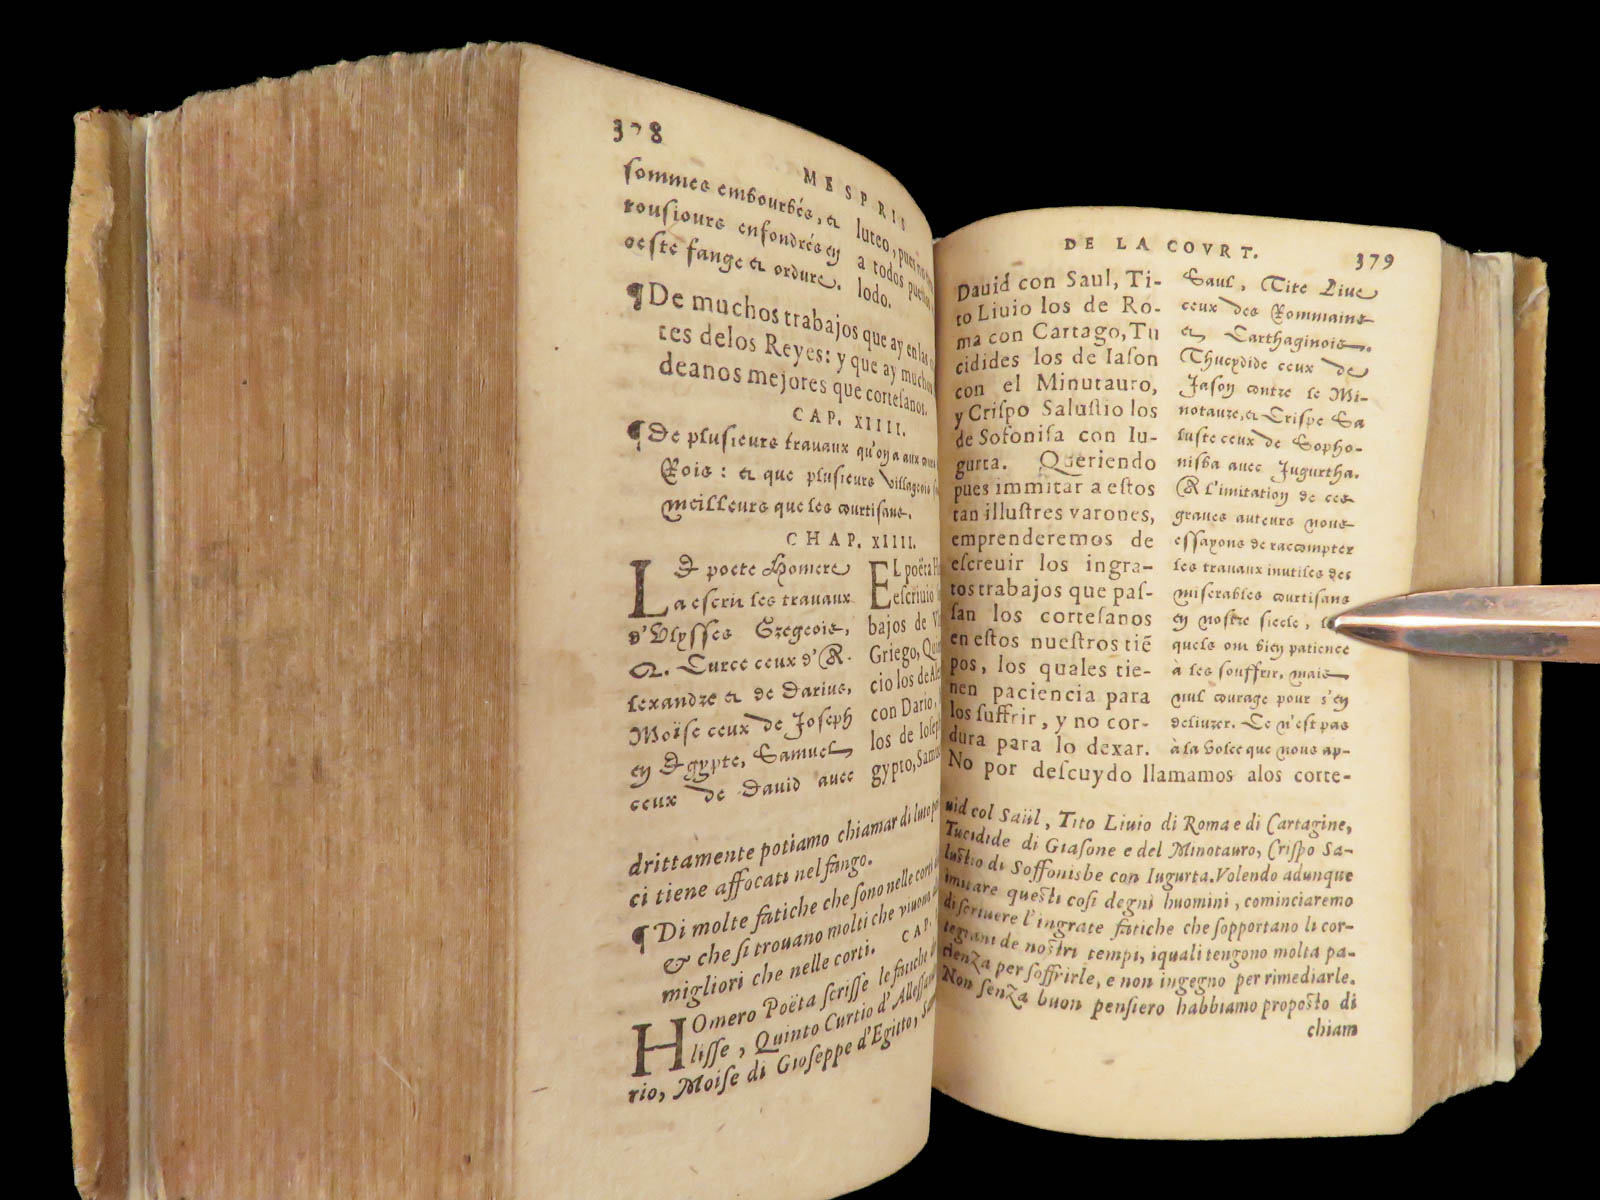 378
MESPRIS
sommes embourbés, et
tousiours enfondrés en
ceste fange et ordure.
luteo, pues
a todos
lodo.
¶De muchos trabajos que ay en las
tes delos Reyes: y que ay muchos
deanos mejores que cortesanos.
CAP. XIIII.
¶De plusieurs travaux qu'on a aux
Rois: et que plusieurs villageois
meilleurs que les courtisans.
CHAP. XIIII.
LE poete Homere
a escrit les travaux
d'Vlysses Gregeois,
Q. Curce ceux d'A-
lexandre et de Darius,
Moïse ceux de Joseph
en Egypte, Samuel
ceux de David avec
EL poëta
escriuio
bajos de
Griego,
cio los de
con Dario,
los de
gypto,
drittamente potiamo chiamar di luto
ci tiene affocati nel fango.
¶Di molte fatiche che sono nelle corti
& che si trouano molti che viuono
migliori che nelle corti. CAP.
HOmero Poëta scrisse le fatiche
lisse, Quinto Curtio d'
rio, Moise di Gioseppe d'Egitto,
DE LA COVRT. 379
Dauid con Saul, Ti-
to Liuio los de Ro-
ma con Cartago, Tu
cidides los de Iason
con el Minutauro,
y Crispo Salustio los
de Sofonisa con Iu-
gurta. Queriendo
pues immitar a estos
tan illustres varones,
emprenderemos de
escreuir los ingra-
tos trabajos que pas-
san los cortesanos
en estos nuestros tiẽ
pos, los quales tie-
nen paciencia para
los suffrir, y no cor-
dura para lo dexar.
No por descuydo llamamos alos corte-
Saul, Tite Live
ceux des Rommains
et Carthaginois.
Thucydide ceux de
Jason contre le Mi-
notaure, et Crispe Sa
luste ceux de Sopho-
nisba avec Jugurtha.
A l'imitation de ces
graves auteurs nous
essayons de raccompter
les travaux inutiles des
miserables courtisans
en nostre siecle,
quels ont bien patience
à les souffrir, mais
nul courage pour s'en
delivrer. Ce n'est pas
à la volee que nous ap-
uid col Saül, Tito Liuio di Roma e di Cartagine,
Tucidide di Giasone e del Minotauro, Crispo Sa-
lustio di Soffonisbe con Iugurta. Volendo adunque
imitare questi cosi degni huomini, cominciaremo
di scriuere l'ingrate fatiche che sopportano li cor-
tegiani de nostri tempi, iquali tengono molta pa-
tienza per soffrirle, e non ingegno per rimediarle.
Non senza buon pensiero habbiamo proposto di
chiam